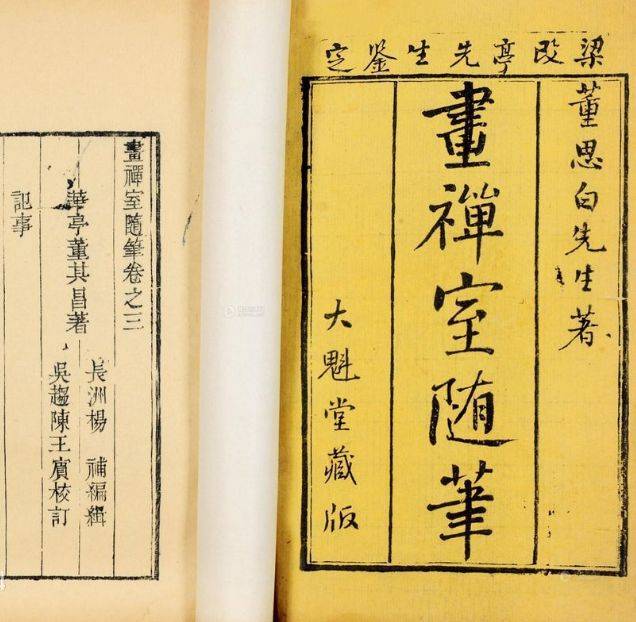 梁改亭先生鉴定
董思白先生著
畫禪室随筆
大魁堂藏版
畫禪室隨筆卷之三
華亭董其昌著
長洲楊 補編緝
吳趨陳王賓校訂
記事